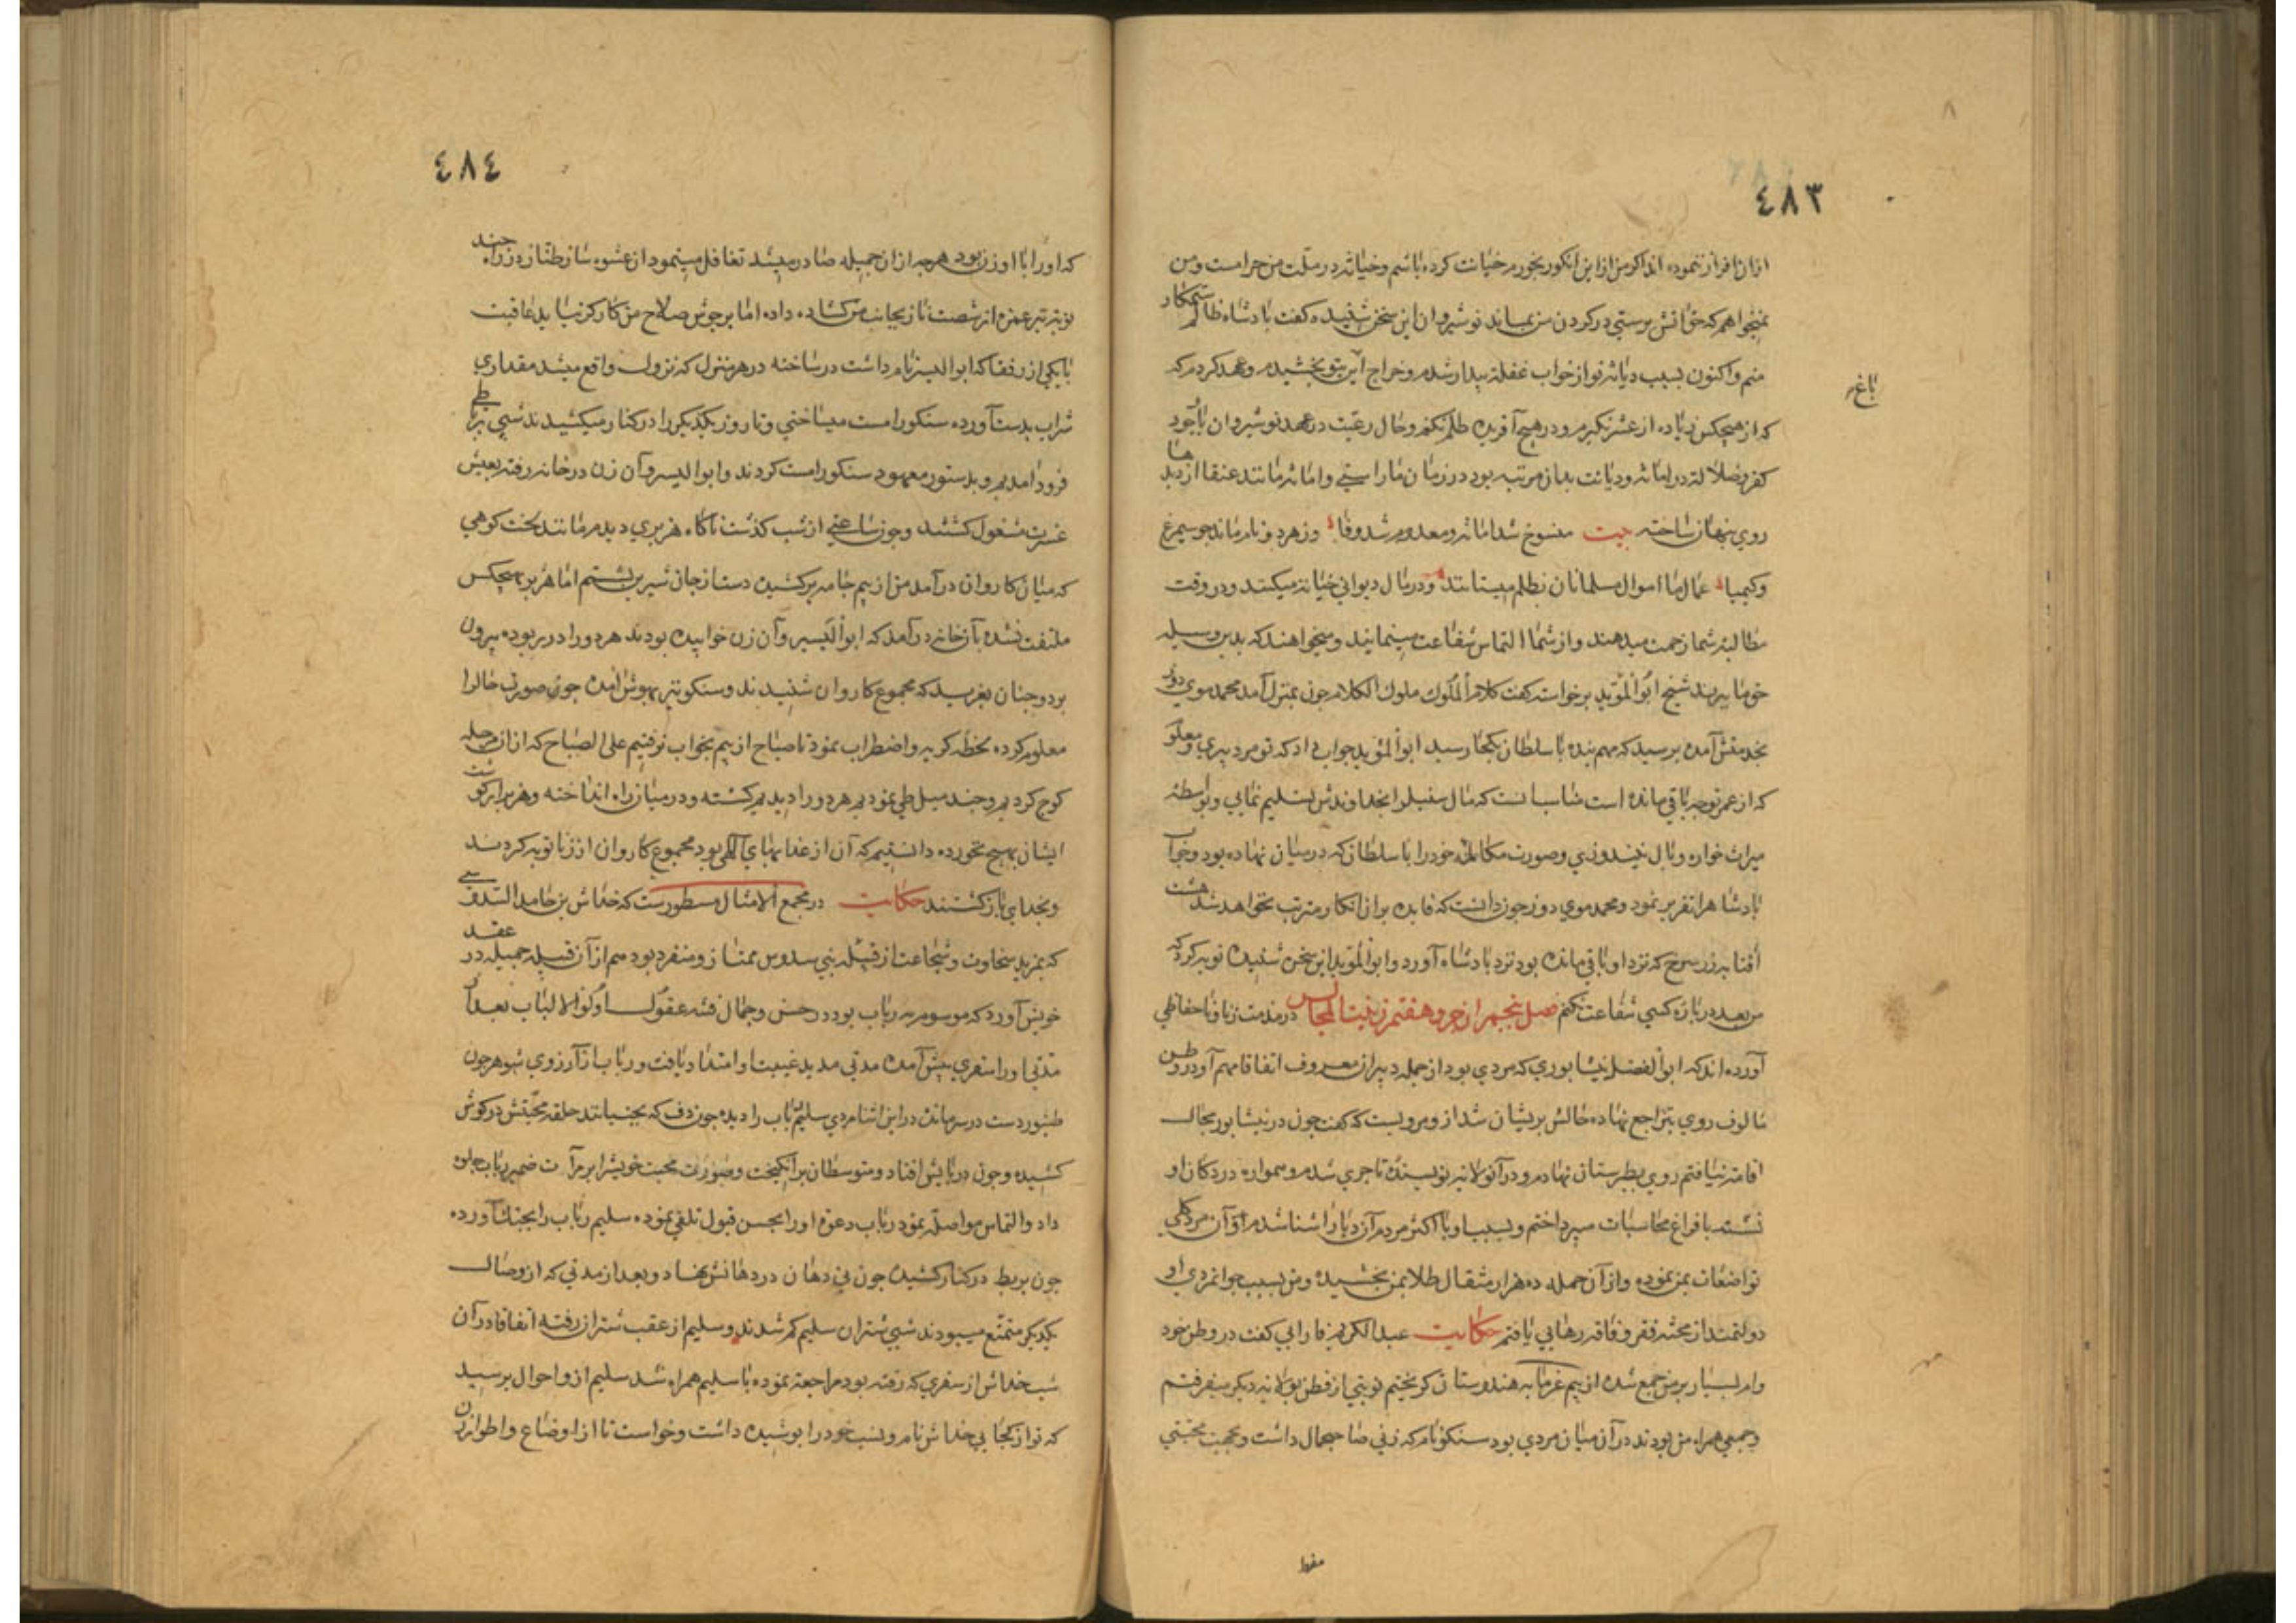 ٤٨٣
از آن افراز ننموده اند اکر من از این انکور بخورم خیانت کرده باشم و خیانة در ملت من حرامست و من
نمیخواهم که حق آتش پرستی در کردن من بماند نوشیروان این سخن شنیده کفت بادشاه ظالم ستمکار
منم و اکنون بسبب دیانة تو از خواب غفلة بیدار شدم و خراج این بتو بخشیدم و عهد کردم که
باغ
که از هیچکس زیاده از عشر نکیرم و در هیچ آفریده ظلم نکنم و حال رعیت در عهد نوشیروان باوجود
کفر و ضلالة در امانة و دیانت بدان مرتبه بود در زمان ما راستی و امانة مانند عنقا از دیدها
روی پنهان ساخته بیت منسوخ شد امانة و معدوم شد وفا وز هر دو نام ماند جو سیمرغ
و کیمیا عمال ما اموال مسلمانان بظلم میستانند و در مال دیوانی خیانة میکنند و در وقت
مطالبه شما زحمت میدهند و از شما التماس شفاعت مینمایند و میخواهند که بدین وسیله
خونها ببرند شیخ ابوالمؤید برخواسته کفت کلام الملوک ملوک الکلام جون بمنزل آمد محمد موی دوز
بخدمتش آمده برسید که مهم بنده با سلطان بکجا رسید ابوالمؤید جواب داد که تو مرد پیری و معلو
که از عمر توجه باقی مانده است مناسب آنست که مال سنبل را بخداوندش تسلیم نمایی و بواسطه
میراث خواره وبال نیندوزی و صورت مکالمه خود را با سلطان که در میان نهاده بود و جواب
بادشاه را تقریر نمود و محمد موی دوز جون دانست که فایده بر آن انکار مترتب نخواهد شد هشت
آفتابه زر سرخ که نزد او باقی مانده بود نزد بادشاه آورد و ابوالمؤید این سخن شنیده توبه کرد که
من بعد در باره کسی شفاعت نکنم فصل پنجم از جزو هفتم زینت المجالس در مذمت زنا و ناحفاظی
آورده اند که ابوالفضل نیشابوری که مردی بود از جمله دبیران معروف اتفاقا مهم آو در وطن
مالوف روی بتراجع نهاده حالش بریشان شد ازو مرویست که کفت جون در نیشابور مجال
اقامة نیافتم روی بطبرستان نهادم و در آنولایه نویسنده تاجری شدم و همواره در دکان او
نشسته با فراغ محاسبات میپرداختم و بسبب او با اکثر مردم آن دیار آشنا شدم و آن مرد کلی
تواضعات بمن نموده و از آن جمله ده هزار مثقال طلا بمن بخشیده و من بسبب جوانمردی او
دولتمند از محنة فقر و فاقه رهایی یافتم حکایت عبدالکریم فارابی کفت در وطن خود
وام بسیار بر من جمع شده از بیم غرما به هندوستان کریختم نوبتی از فطن بولایه دیکر سفر رفتم
و جمعی همراه من بودند در آن میان مردی بود سنکو نام که زنی صاحبجمال داشت و بجهت محبتی
مقوا
٤٨٤
که او را با او زن بود هر جه از آن جمیله صادر میشد تغافل مینمود از عشوه ساز طناز در راه جند
نوبة تیر غمزه از شصت ناز بجانب من کشاده داده اما بر جوش صلاح من کارکر نیامد عاقبت
با یکی از رفقا که ابو الیسر نام داشت در ساخته در هر منزل که نزول واقع میشد مقداری
شراب بدست آورده سنکو را مست میساختی و تا روز یکدیکر را در کنار میکشیدند شبی برباطی
فرود آمدیم و بدستور معهود سنکو را مست کردند و ابو الیسر و آن زن در خانه رفته بعیش
عشرت مشغول کشتند و جون ساعتی از شب کذشت ناکاه هزبری دیدم مانند لخت کوهی
که میان کاروان در آمد من از بیم جامه بر کشیده دست از جان شیرین بشستم اما هزبر بهیچکس
ملتفت نشده بآن خانه در آمد که ابو الیسر و آن زن خوابیده بودند هر دو را در ربوده بیرون
برد و جنان بغرید که مجموع کاروان شنیدند و سنکو نیز بهوش آمده جون صورت حال را
معلوم کرده لحظه کریه و اضطراب نمود تا صباح از بیم بخواب نرفتیم علی الصباح که از آن مرحله
کوج کردیم و جند میل طی نمودیم هر دو را دیدیم کشته و در میان راه انداخته و هزبر از کوشت
ایشان هیج نخورده دانستیم که آن از عذابهای الهی بود مجموع کاروان از زنا توبه کردند
و بخدای باز کشتند حکایت در مجمع الامثال مسطورست که خداش بن حامد السدوسی
که بمزید سخاوت و شجاعت از قبیله بنی سدوس ممتاز و منفرد بود هم از آن قبیله جمیله در عقد
خویش آورد که موسومه به رباب بود در حسن و جمال فتنه عقول اولو الالباب بعد از
مدتی او را سفری پیش آمده مدتی مدید غیبت او امتداد یافت و رباب از آرزوی شوهر جون
طنبور دست در سر مانده در این اثنا مردی سلیم نام رباب را دیده جون دف که بجنبانند حلقه محبتش در کوش
کشیده و جون در پایش افتاد و متوسطان بر انکیخت و صورت محبت خویش را بر مرآت ضمیر رباب جلوه
داد و التماس مواصلة نمود رباب دعوة او را بحسن قبول تلقی نموده سلیم رباب را بجنک آورده
جون بربط در کنار کشیده جون نی دهان در دهانش نهاد و بعد از مدتی که از وصال
یکدیکر متمتع میبودند شبی شتران سلیم کم شدند و سلیم از عقب شتران رفته اتفاقا در آن
شب خداش از سفری که رفته بود مراجعة نموده با سلیم همراه شد سلیم ازو احوال برسید
که تو از کجایی خداش نام و نسب خود را بوشیده داشت و خواست تا از اوضاع و اطوار زن